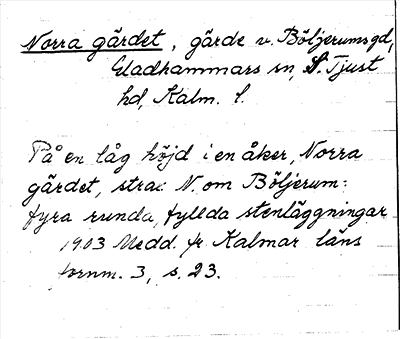 Norra gärdet, gärde v. Böljerumsgd,
Gladhammars sn, S. Tjust
hd, Kalm. l.
På en låg höjd i en åker, Norra
gärdet, strax N. om Böljerum:
fyra runda, fyllda stenläggningar
1903 Medd. fr. Kalmar läns
fornm. 3, s. 23.